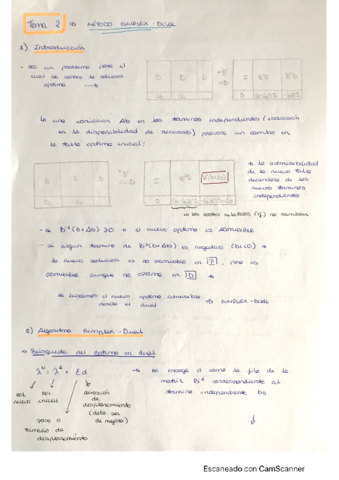 Tema 2 → MÉTODO SIMPLEX-DUAL
1) Introducción
- sea un problema para el
cual se conoce la solución
óptima →
B⁻¹
↳ una variación Δb en los términos independientes (variación
en la disponibilidad de recursos) provoca un cambio en
la tabla óptima inicial:
→ la admisibilidad
de la nueva tabla
dependerá de los
nuevos términos
independientes
los costes reducidos no cambian
- si B⁻¹(b+Δb) ≥ 0 → el nuevo óptimo es admisible
- si algún término de B⁻¹(b+Δb) es negativo →
la nueva solución es no admisible en P, pero es
admisible aunque no óptima en D →
↳ buscamos el nuevo óptimo admisible
desde el dual → SIMPLEX-DUAL
2) Algoritmo Simplex-Dual
→ Búsqueda del óptimo en dual
+ εd
nuevo
inicial
paso o
tamaño de
desplazamiento
dirección
de
desplazamiento
(debe ser
de mejora)
→ se escoge d como la fila de la
matriz B⁻¹ correspondiente al
término independiente
Escaneado con CamScanner